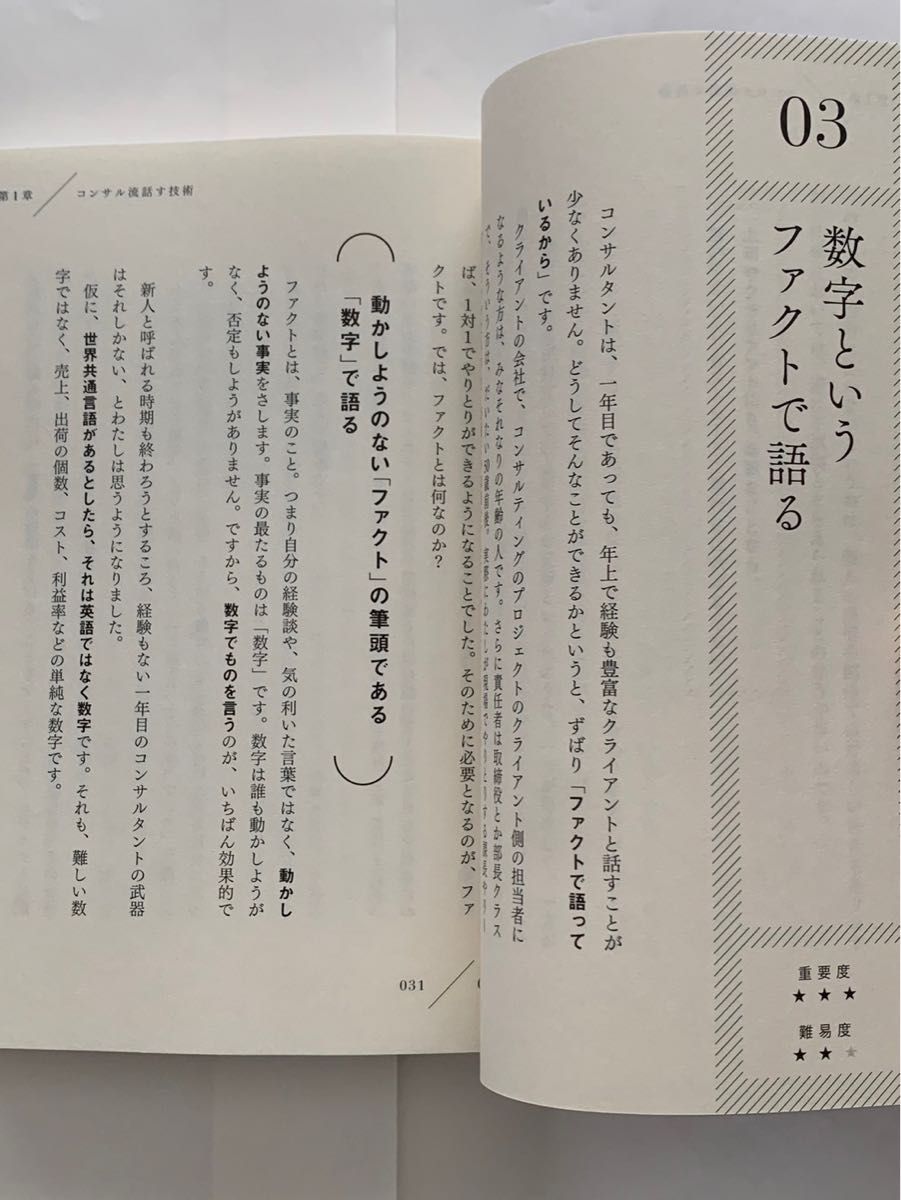 03
数字という
ファクトで語る
重要度
★★★
難易度
★★★
コンサルタントは、一年目であっても、年上で経験も豊富なクライアントと話すことが
少なくありません。どうしてそんなことができるかというと、ずばり「ファクトで語って
いるから」です。
クライアントの会社で、コンサルティングのプロジェクトのクライアント側の担当者に
なるような方は、みなそれなりの年齢の人です。さらに責任者は取締役とか部長クラス
で、そういう方は、だいたい50歳前後。実際にわたしが現場でやりとりする課長や
ば、1対1でやりとりができるようになることでした。そのために必要となるのが、ファ
クトです。では、ファクトとは何なのか?
第1章
コンサル流話す技術
動かしようのない「ファクト」の筆頭である
「数字」で語る
ファクトとは、事実のこと。つまり自分の経験談や、気の利いた言葉ではなく、動かし
ようのない事実をさします。事実の最たるものは「数字」です。数字は誰も動かしようが
なく、否定もしようがありません。ですから、数字でものを言うのが、いちばん効果的で
す。
新人と呼ばれる時期も終わろうとするころ、経験もない一年目のコンサルタントの武器
はそれしかない、とわたしは思うようになりました。
仮に、世界共通言語があるとしたら、それは英語ではなく数字です。それも、難しい数
字ではなく、売上、出荷の個数、コスト、利益率などの単純な数字です。
031